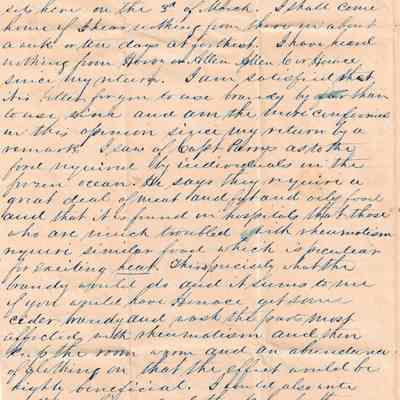 set here on the 3d of March. I shall come
home if I hear nothing from there in about
a week or ten days at furthest. I have heard
nothing from or Allen
since my return. I am satisfied that
it is better for you to use brandy by far than
to use and am the more confirmed
in this opinion since my return by a
remark I saw of Capt Parrys as to the
food required by individuals in the
frozen ocean. He says they require a
great deal of meat and fat and oily food
and that it is found in hospitals that those
who are much troubled with rheumatism
require similar food which is peculiar
for exciting heat. This is precisely what the
brandy would do and it seems to me
if you would have get some
cider brandy and wash the parts most
affected with rheumatism and then
keep the room warm and an abundance
of clothing on that the effect would be
highly beneficial. I would also